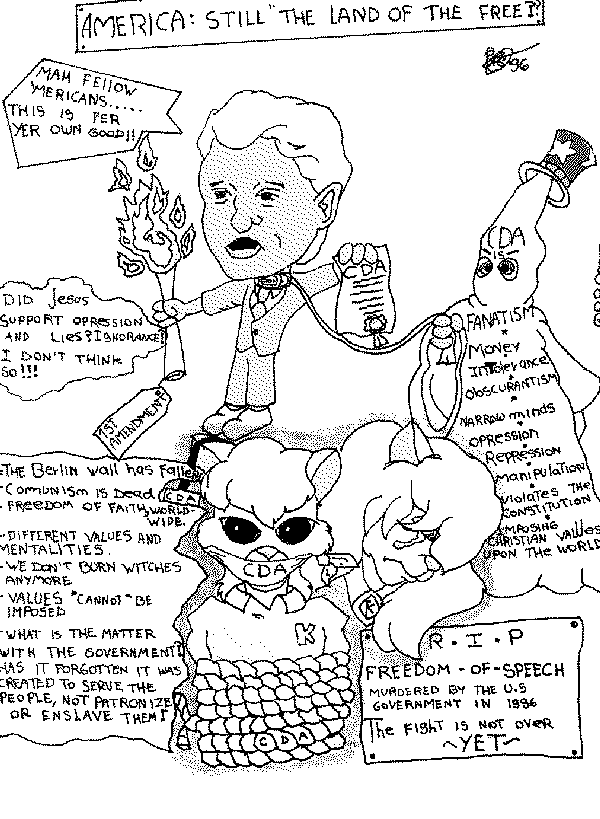 AMERICA: STILL "THE LAND OF THE FREE"?
96
MAH FELLOW
'MERICANS.....
THIS IS FER
YER OWN GOOD!!
CDA
CDA
IS
DID Jesus
SUPPORT OPRESSION
AND LIES?IGNORANCE?
I DON'T THINK
SO!!!
1ST
AMENDMENT
FANATISM
Money
Intolerance
OBSCURANTISM
NARROW minds
OPRESSION
Repression
Manipulation
Violates The
CONSTITUTION
IMPOSING
CHRISTIAN VALUES
UPON THE WORLD
-THE Berlin wall has Fallen
-Comunism is Dead
-FREEDOM OF FAITH WORLD-
WIDE.
-DIFFERENT VALUES AND
MENTALITIES.
-WE DON'T BURN WITCHES
ANYMORE
-VALUES "CANNOT" BE
IMPOSED
-WHAT IS THE MATTER
WITH THE GOVERNMENT?
HAS IT FORGOTTEN IT WAS
CREATED TO SERVE THE
PEOPLE, NOT PATRONIZE
OR ENSLAVE THEM?
CDA
CDA
K
CDA
R.I.P
FREEDOM-OF-SPEECH
MURDERED BY THE U.S
GOVERNMENT IN 1996
The FIGHT IS NOT OVER
~YET~